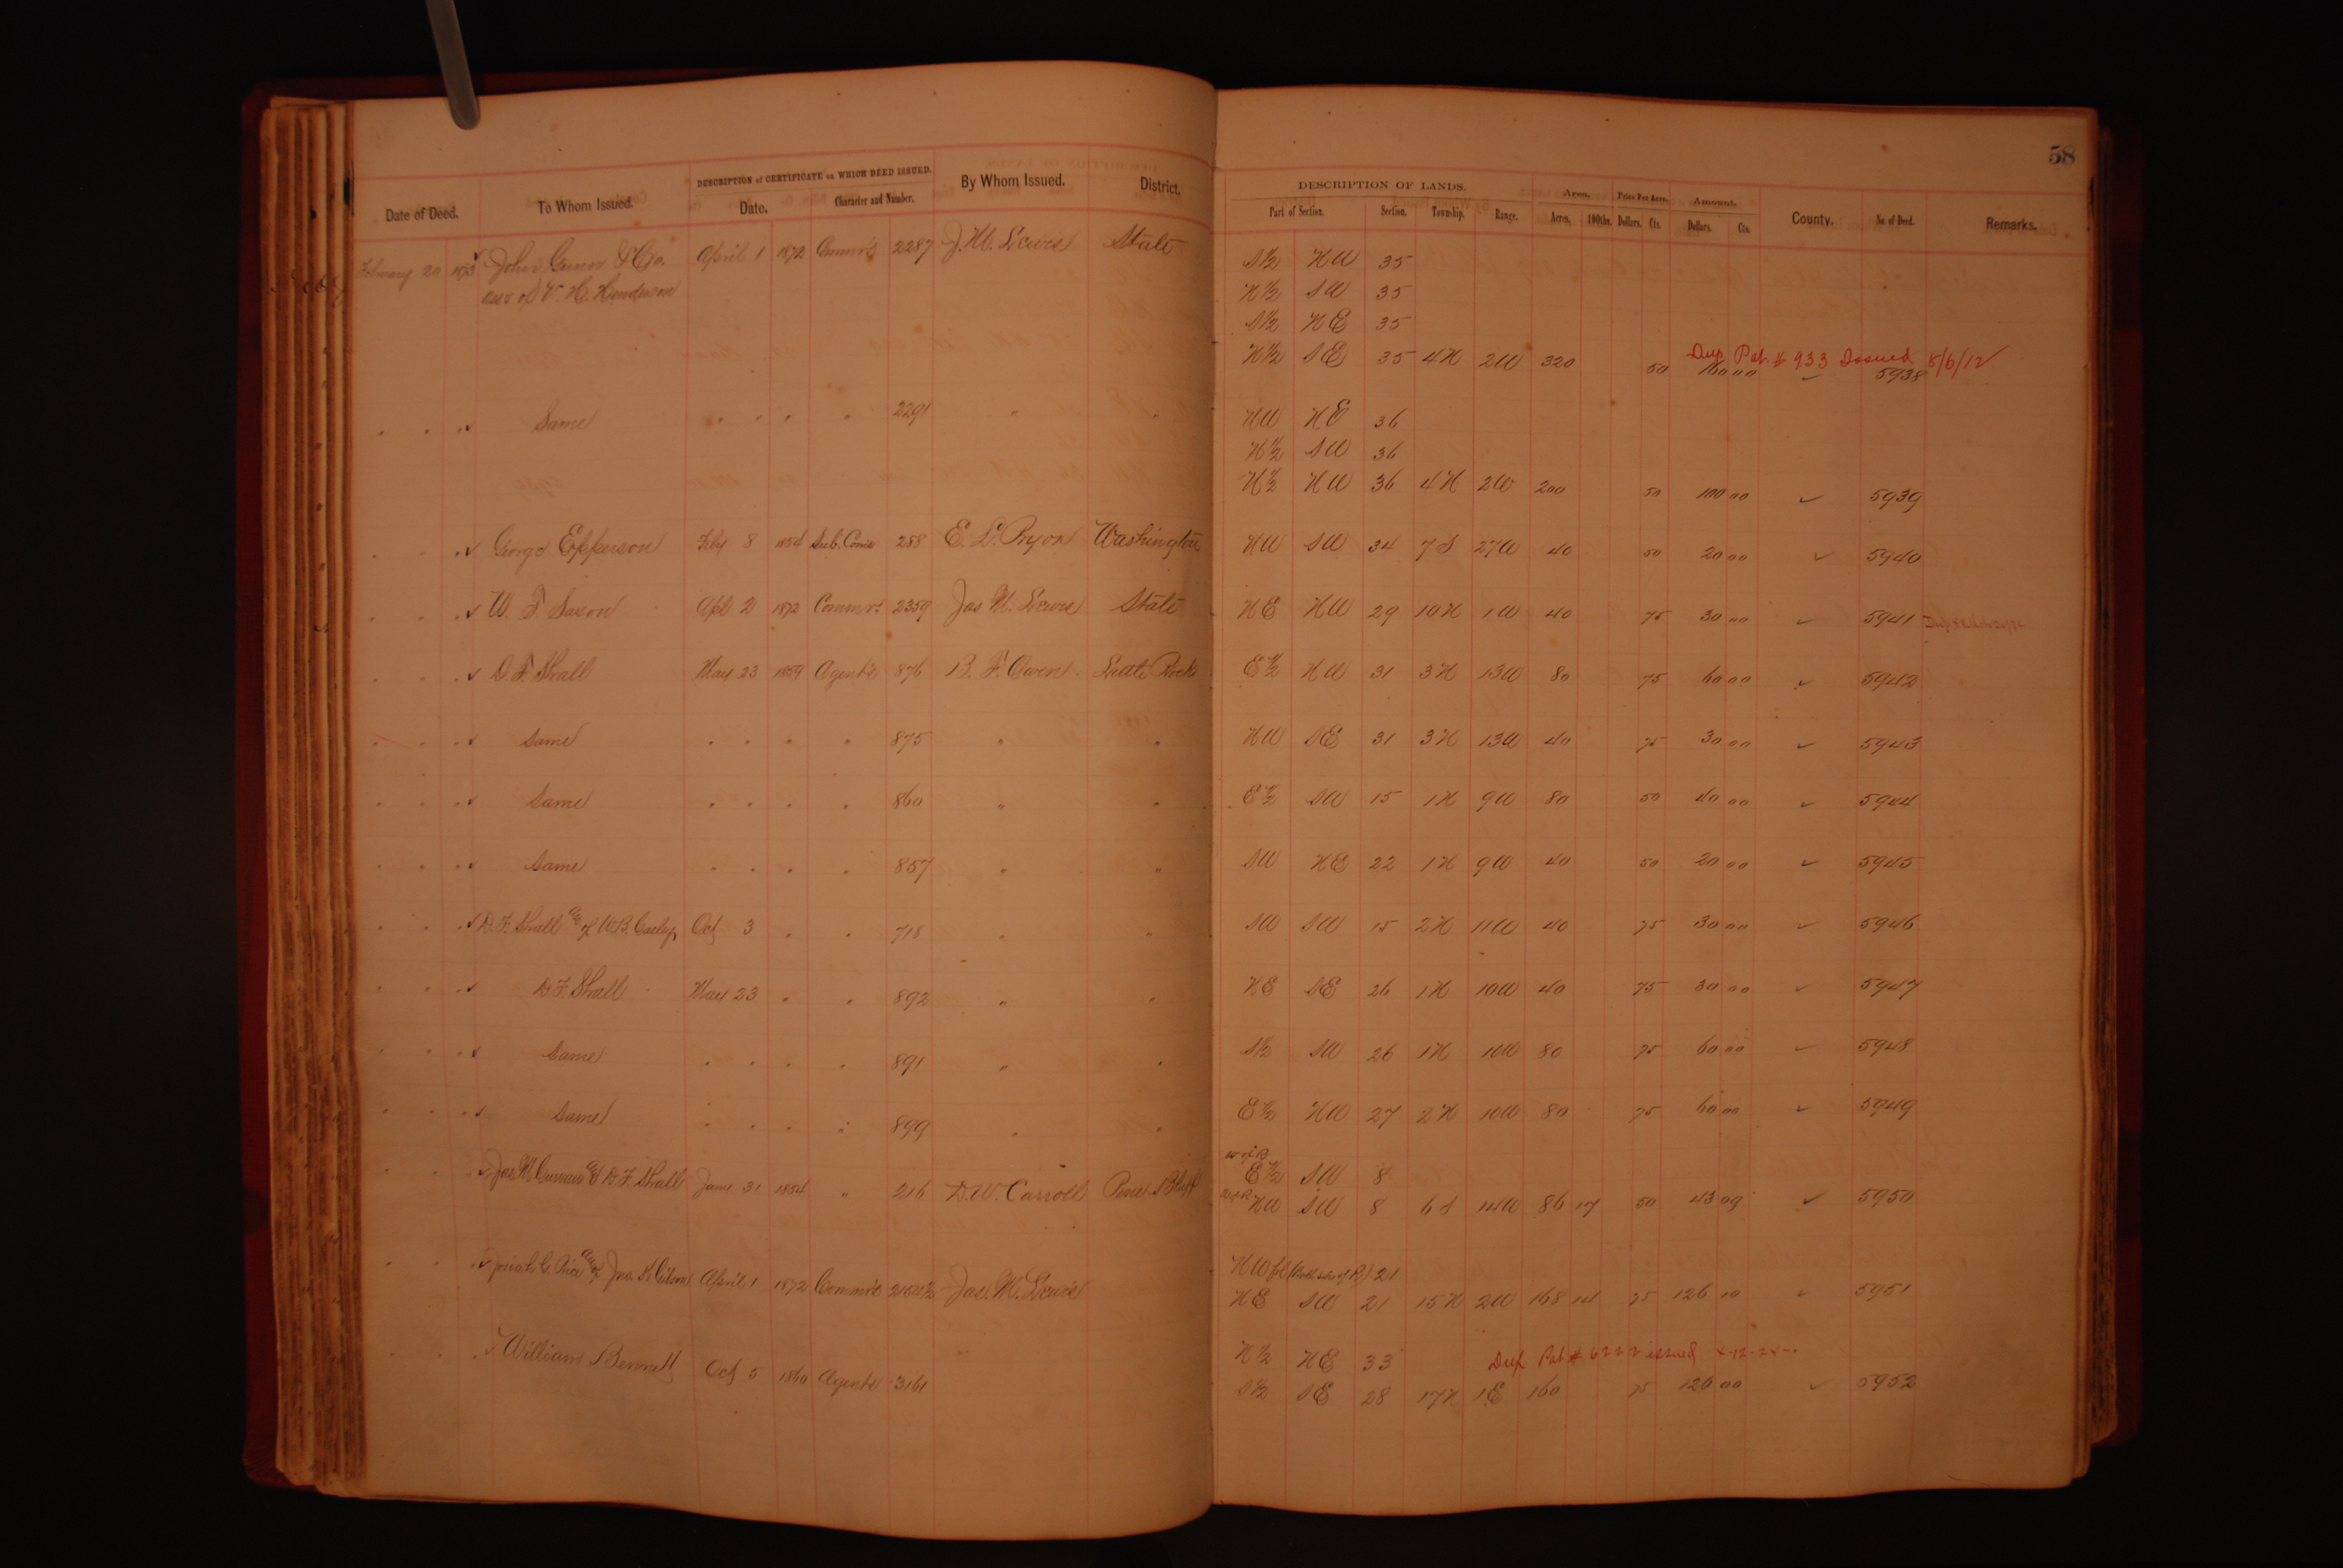 58
DESCRIPTION of CERTIFICATE on WHICH DEED ISSUED.
Date of Deed. To Whom Issued. Date. Character and Number. By Whom Issued. District.
DESCRIPTION OF LANDS. Area. Price Per Acre. Amount.
Part of Section. Section. Township. Range. Acres. 100ths. Dollars. Cts. Dollars. Cts. County. No. of Deed. Remarks.
February 20 1873 ✓ John Gunn & Co. April 1 1872 Commr's 2287 J. M. Lewis State S½ NW 35
ass of V. H. Henderson N½ SW 35
S½ NE 35
Dup. Pat. # 933 Issued 8/6/12
N½ SE 35 4N 2W 320 50 160 00 ✓ 5938
" " " ✓ Same " " " " 2291 " " NW NE 36
N½ SW 36
N½ NW 36 4N 2W 200 50 100 00 ✓ 5939
" " " ✓ George Epperson Feby 8 1854 Sub. Comr 288 E. L. Pryor Washington NW SW 34 7S 27W 40 50 20 00 ✓ 5940
" " " ✓ W. F. Saxon Apl 2 1872 Commrs 2359 Jas M. Lewis State NE NW 29 10N 1W 40 75 30 00 ✓ 5941
" " " ✓ D. F. Shall May 23 1859 Agents 876 B. F. Owen Little Rock E½ NW 31 3N 13W 80 75 60 00 ✓ 5942
" " " ✓ Same " " " " 875 " " NW SE 31 3N 13W 40 75 30 00 ✓ 5943
" " " ✓ Same " " " " 860 " " E½ SW 15 1N 9W 80 50 40 00 ✓ 5944
" " " ✓ Same " " " " 857 " " SW NE 22 1N 9W 40 50 20 00 ✓ 5945
" " " ✓ D. F. Shall ass of W. B. Oct 3 " " 718 " " SW SW 15 2N 11W 40 75 30 00 ✓ 5946
" " " ✓ D. F. Shall May 23 " " 892 " " NE SE 26 1N 10W 40 75 30 00 ✓ 5947
" " " ✓ Same " " " " 891 " " S½ SW 26 1N 10W 80 75 60 00 ✓ 5948
" " " ✓ Same " " " " 899 " " E½ NW 27 2N 10W 80 75 60 00 ✓ 5949
W of B
E½ SW 8
" " " ✓ Jas M. D. F. Shall June 31 1854 " 216 D. W. Carroll Pine Bluff NW SW 8 6S 10W 86 17 50 43 09 ✓ 5950
NW fl (Both sides of R) 21
" " " ✓ Josiah C. Price ass of Jno. April 1 1872 Commr's 2154½ Jas. M. Lewis NE SW 21 15N 2W 168 14 75 126 10 ✓ 5951
N½ NE 33 Dup Pat # 6222 issued
" " " ✓ William Bennett Oct 5 1860 Agents 3161 S½ SE 28 17N 1E 160 75 120 00 ✓ 5952